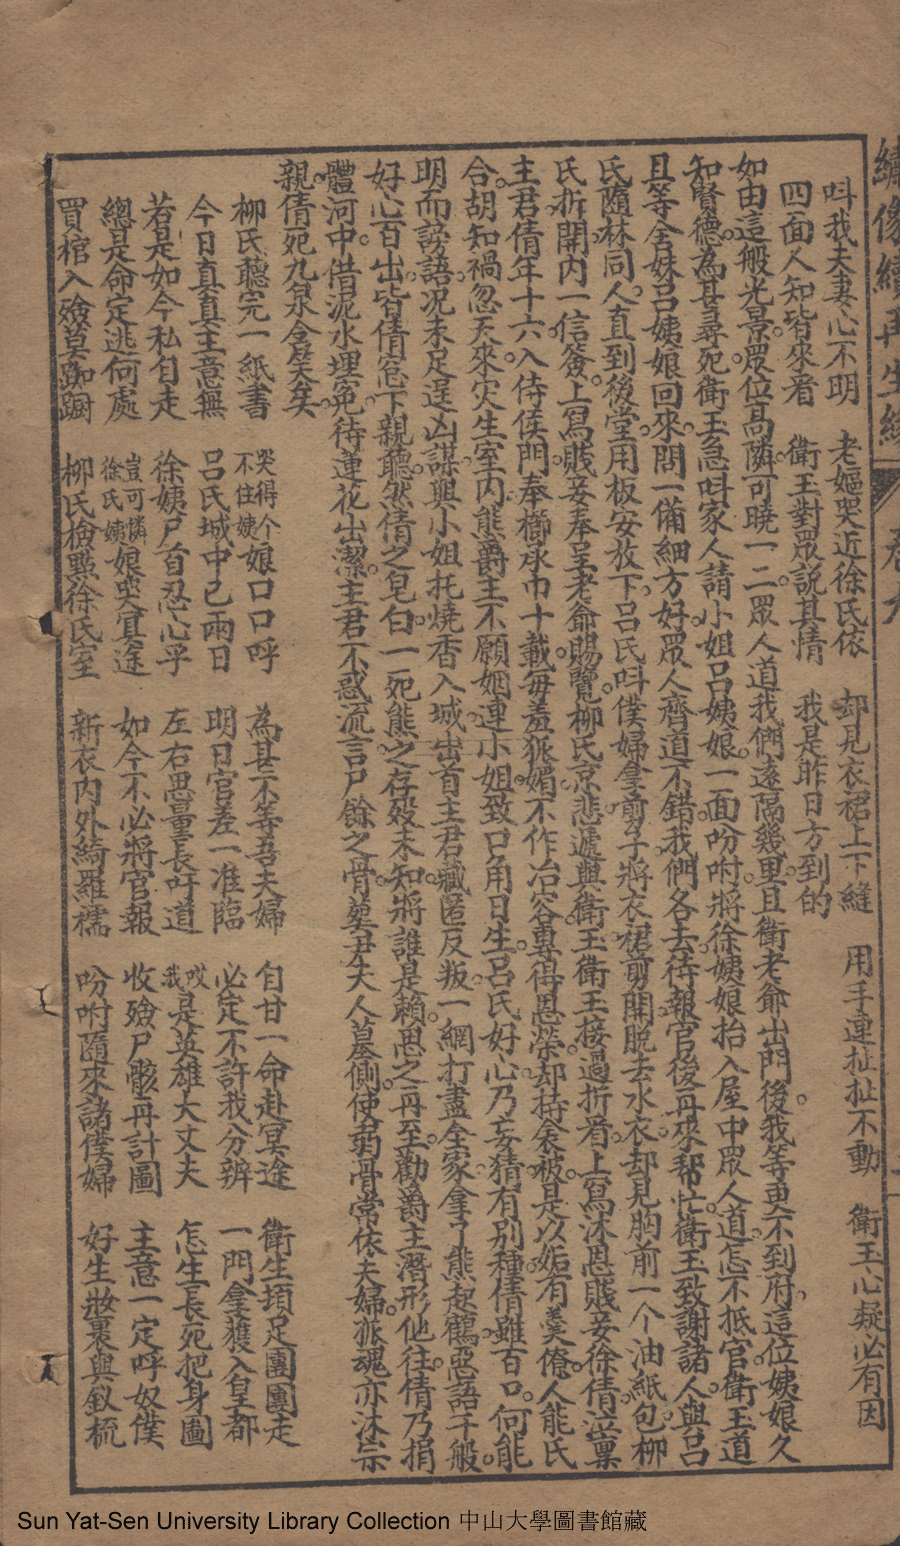 繡像續再生緣 卷九
呌我夫妻心不明 老嫗哭近徐氏依 却見衣裙上下縫 用手連扯扯不動 衛玉心疑必有因
四面人知皆來看 衛玉對眾說其情 我是昨日方到的
如由這般光景眾位高隣可曉一二眾人道我們遠隔幾里且衛老爺出門後我等更不到府這位姨娘久
知賢德為甚尋死衛玉急呌家人請小姐呂姨娘一面吩咐將徐姨娘抬入屋中眾人道怎不抵官衛玉道
且等舍妹呂姨娘回來問一備細方好眾人齊道不錯我們各去待報官後再來帮忙衛玉致謝諸人與呂
氏隨林同人直到後堂用板安放下呂氏呌僕婦拿剪子將衣裙剪開脫去水衣却見胸前一个油紙包柳
氏折開內一信簽上寫賤妾奉呈老爺賜覽柳氏哀悲遞與衛玉衛玉接過折看上寫沐恩賤妾徐倩泣稟
主君倩年十六入侍侯門奉櫛承巾十載每羞狐媚不作冶容專得恩榮却持衾被是以妬有羹僚人能氏
合胡知禍忽天來灾生室內熊爵主不願姻連小姐致口角日生呂氏好心乃妄猜有別種倩雖百口何能
明而謗語况未足逞凶謀與小姐托燒香入城出首主君藏匿反叛一網打盡全家拿了熊起鶴惡語千般
好心百出皆倩窓下親聽然倩之皂白一死熊之存歿未知將誰是賴思之再至勸爵主潛形他往倩乃捐
體河中借泥水埋寃待蓮花出潔主君不惑流言尸餘之骨塟尹夫人墓側使弱骨常依夫婦孤魂亦沐宗
親倩死九泉含笑矣
柳氏聽完一紙書 哭得个不住姨娘口口呼 為甚不等吾夫婦 自甘一命赴冥途 衛生頓足團團走
今日真真主意無 呂氏城中已兩日 明日官差一准臨 必定不許我分辨 一門拿獲入皇都
若是如今私自走 徐姨尸首忍心乎 左右思量長吁道 哎我是英雄大丈夫 怎生長死把身圖
總是命定逃何處 豈可憐徐氏姨娘哭冥途 如今不必將官報 收殮尸骸再計圖 主意一定呼奴僕
買棺入殮莫踟蹰 柳氏檢點徐氏室 新衣內外綺羅襦 吩咐隨來諸僕婦 好生妝裹與釵梳
Sun Yat-Sen University Library Collection 中山大學圖書館藏